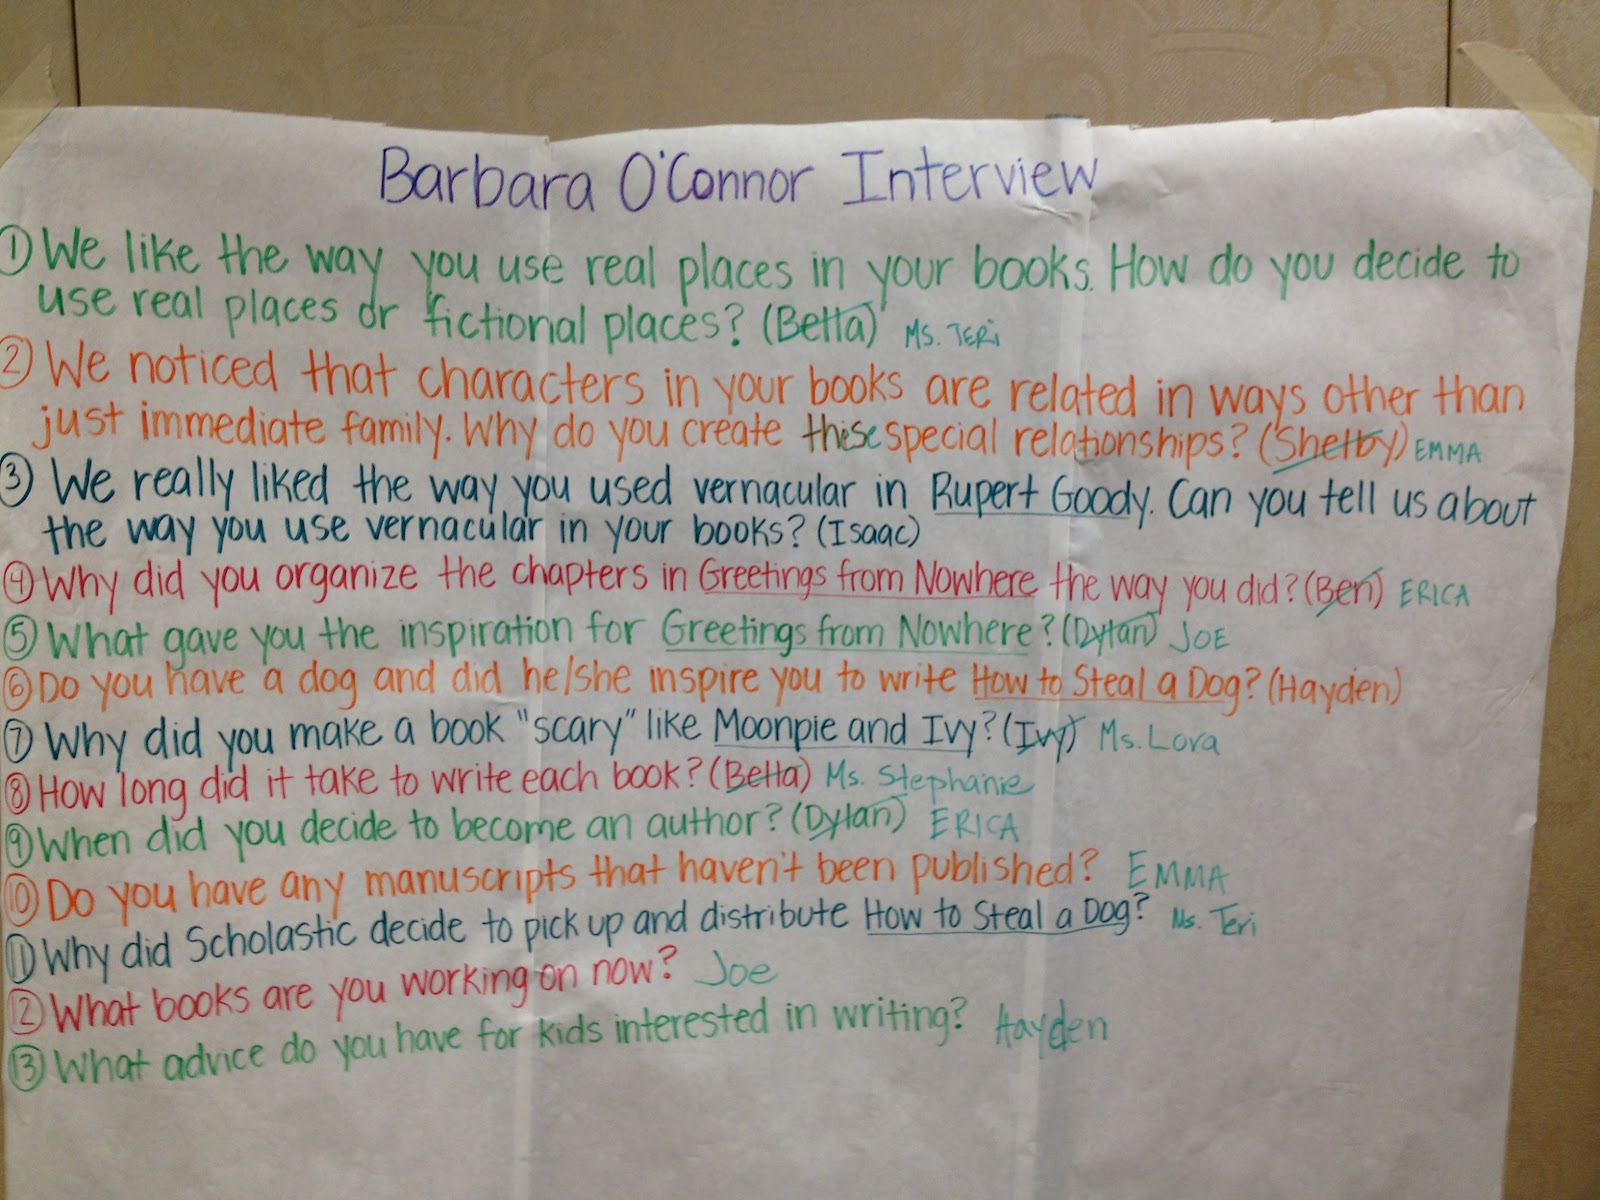 Barbara O'Connor Interview
① We like the way you use real places in your books. How do you decide to
use real places or fictional places? (Betta) Ms. Teri
② We noticed that characters in your books are related in ways other than
just immediate family. Why do you create these special relationships? (Shelby) EMMA
③ We really liked the way you used vernacular in Rupert Goody. Can you tell us about
the way you use vernacular in your books? (Isaac)
④ Why did you organize the chapters in Greetings from Nowhere the way you did? (Ben) ERICA
⑤ What gave you the inspiration for Greetings from Nowhere? (Dylan) JOE
⑥ Do you have a dog and did he/she inspire you to write How to Steal a Dog? (Hayden)
⑦ Why did you make a book "scary" like Moonpie and Ivy? (Ivy) Ms. Lora
⑧ How long did it take to write each book? (Betta) Ms. Stephanie
⑨ When did you decide to become an author? (Dylan) ERICA
⑩ Do you have any manuscripts that haven't been published? EMMA
⑪ Why did Scholastic decide to pick up and distribute How to Steal a Dog? Ms. Teri
⑫ What books are you working on now? Joe
⑬ What advice do you have for kids interested in writing? Hayden